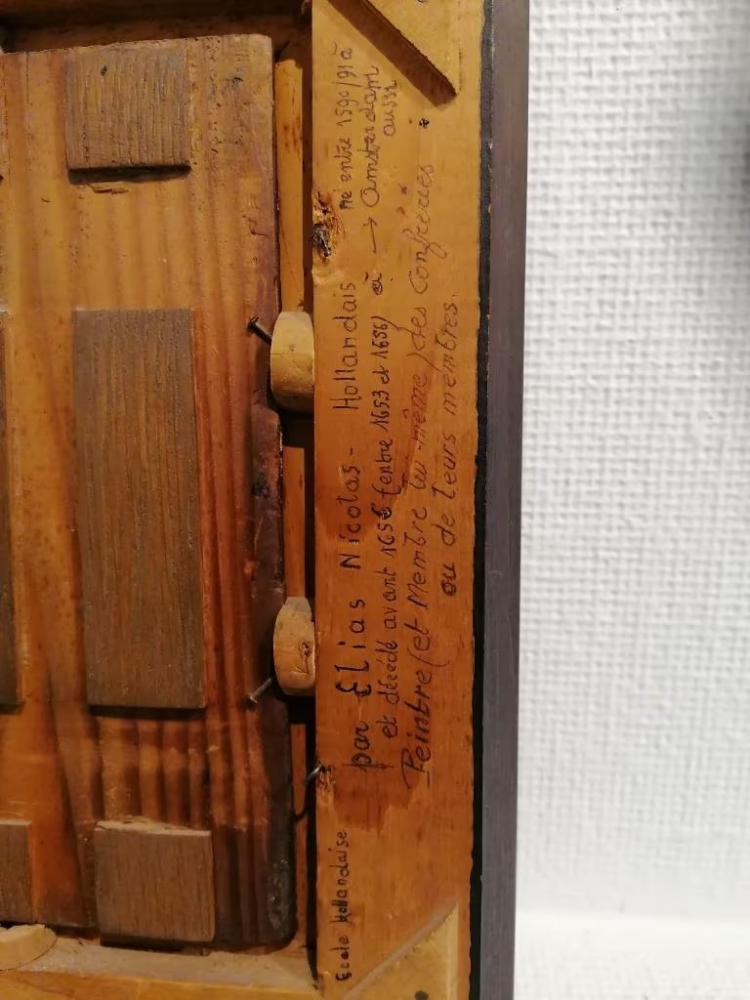 Ecole hollandaise
par Elias Nicolas - Hollandais né entre 1590/91 à
et décédé avant 1656 (entre 1653 et 1656) à → Amsterdam aussi
Peintre (et Membre lui-même) des Confréries
ou de leurs membres.